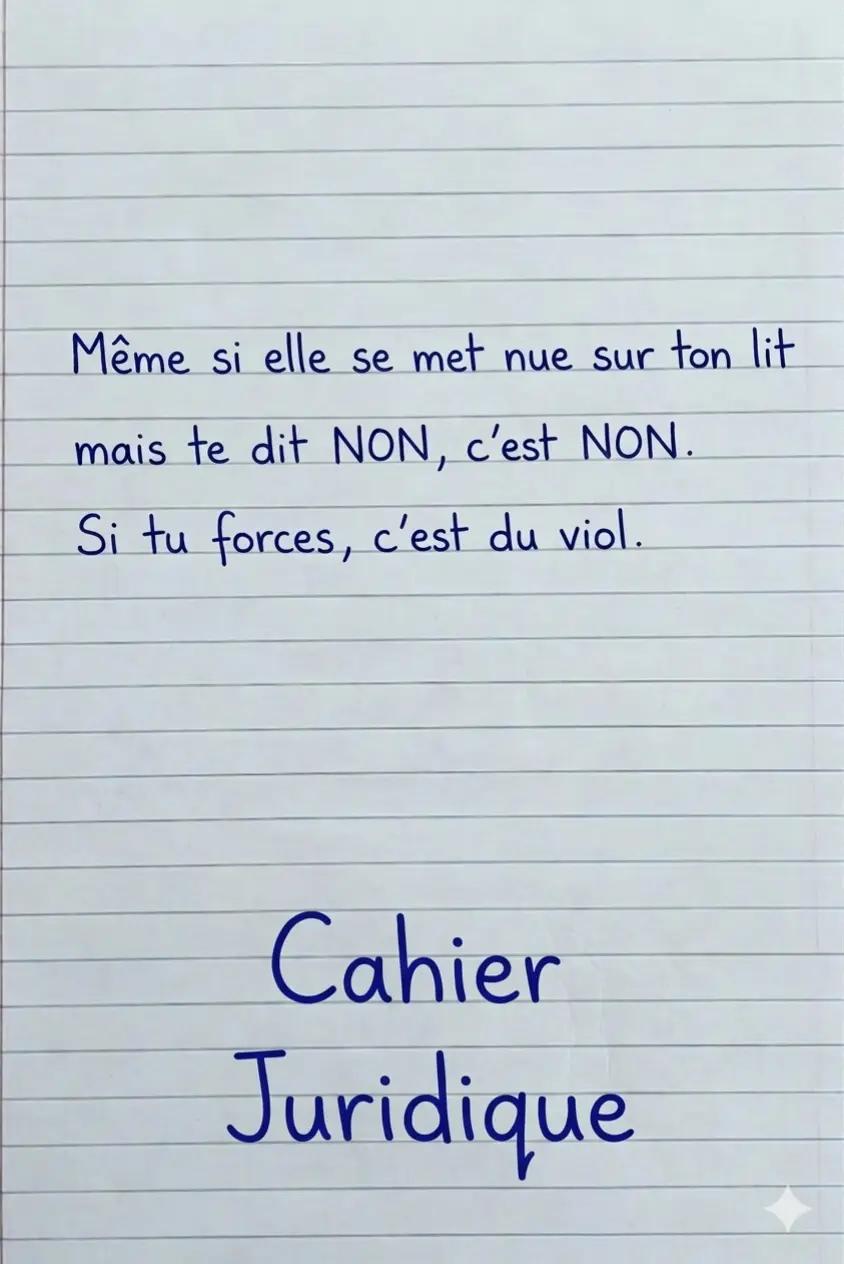 Même si elle se met nue sur ton lit
mais te dit NON, c'est NON.
Si tu forces, c'est du viol.
Cahier
Juridique